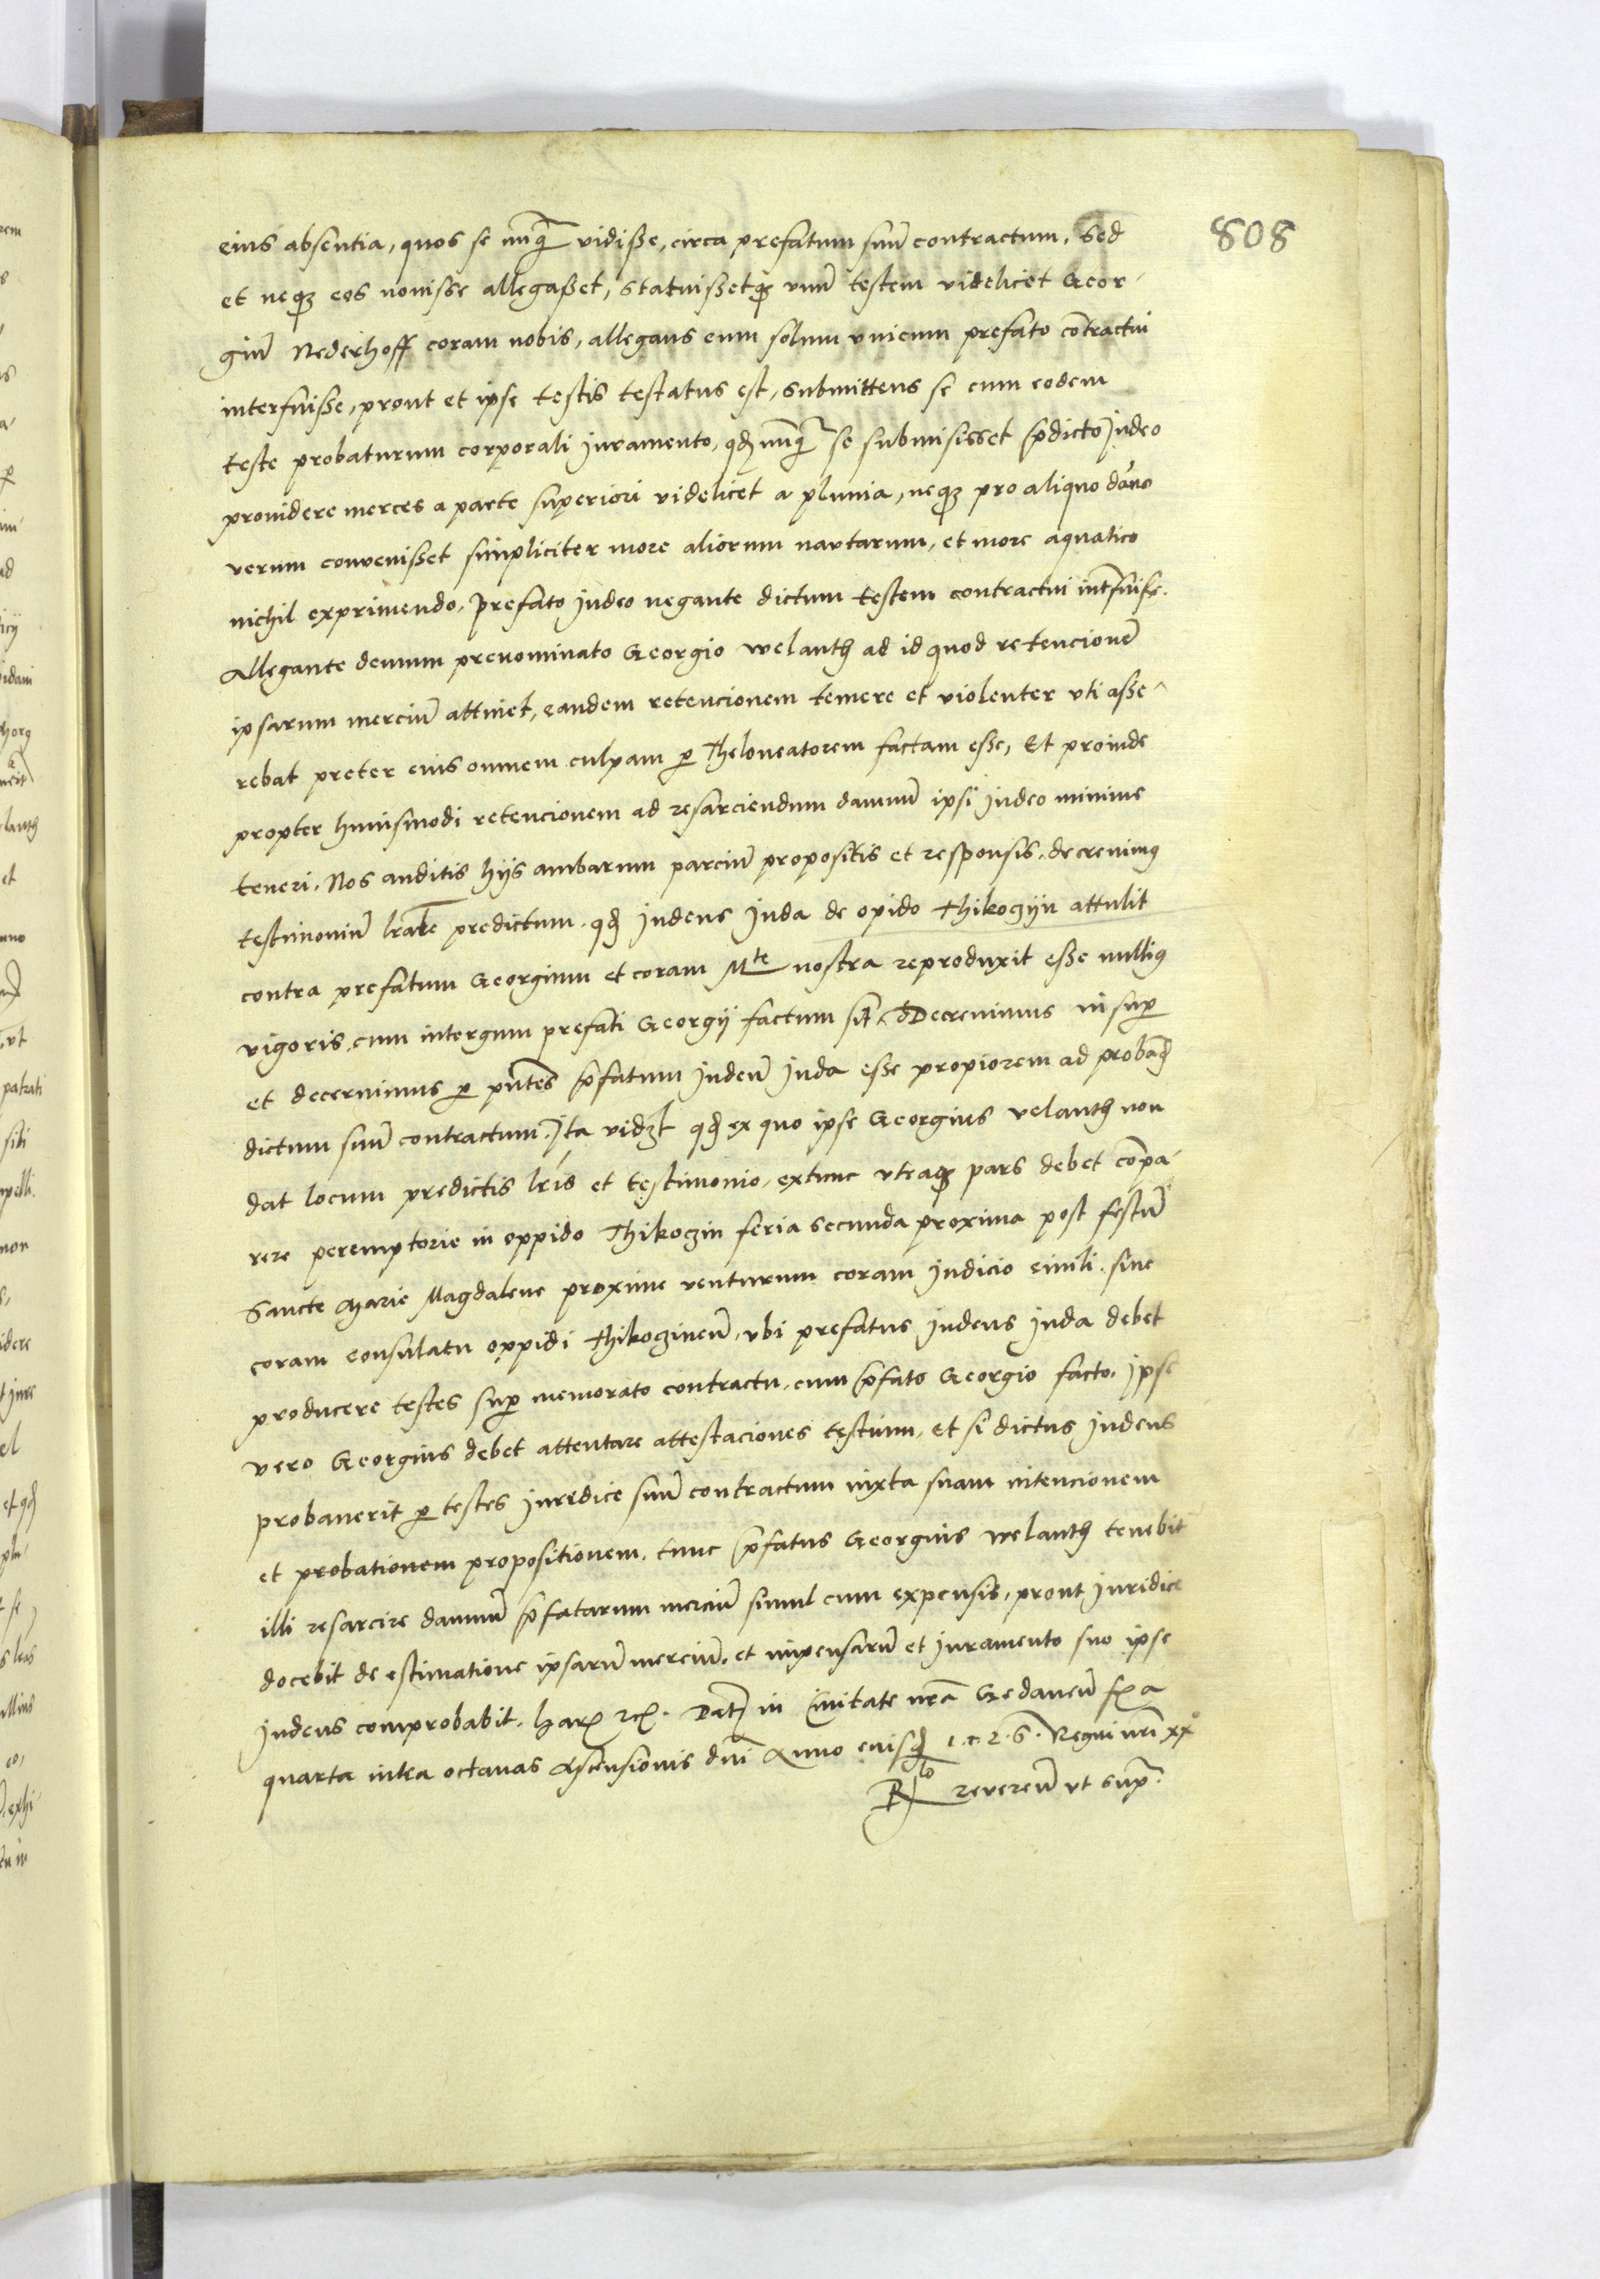 808
eius absentia, quos se nunq̃ vidisse, circa prefatum suũ contractum, Sed
et neqȝ eos novisse allegasset, Statuissetqȝ unũ testem videlicet Geor-
giũ Nederhoff coram nobis, allegans eum solum unicum prefato cõtractui
interfuisse, prout et ipse testis testatus est, Submittens se cum eodem
teste probaturum corporali Juramento, qđ nunq̃ se submisisset p̃dicto Judeo
providere merces a parte superiori videlicet a pluvia, neqȝ pro aliquo dãno
verum convenisset simpliciter more aliorum nautarum, et more aquatico
nichil exprimendo, Prefato Judeo negante dictum testem contractui int̃fuisse.
Allegante demum prenominato Georgio welanth ad id quod retencionẽ
ipsarum merciũ attinet, eandem retencionem temere et violenter uti asse-
rebat preter eius omnem culpam ꝑ Theloneatorem factam esse, Et proinde
propter huiusmodi retencionem ad resarciendum damnũ ipsi Judeo minime
teneri. Nos auditis hijs ambarum parciũ propositis et responsis, decrevimus
testimoniũ lr̃ale predictum, qđ Judeus Juda de opido Thikoczijn attulit
contra prefatum Georgium et coram Mte nostra reproduxit esse nullius
vigoris, cum in tergum prefati Georgij factum sit, Decrevimus insuꝑ
et decernimus ꝑ pñtes p̃fatum Judeũ Juda esse propiorem ad probãđ
dictum suũ contractum, Ita vidȝt qđ ex quo ipse Georgius velanth non
dat locum predictis lr̃is et testimonio, extunc utraqȝ pars debet cõpa-
rere peremptorie in oppido Thikoczin feria secunda proxima post festũ
Sancte Marie Magdalene proxime venturum coram Judicio civili, sive
coram consulatu oppidi Thikoczineñ, ubi prefatus Judeus Juda debet
producere testes suꝑ memorato contractu, cum p̃fato Georgio facto, Ipse
vero Georgius debet attentare attestaciones testium, et si dictus Judeus
probaverit ꝑ testes Juridice suũ contractum iuxta suam intencionem
et probationem propositionem, tunc p̃fatus Georgius welanth tenebit̃
illi resarcire damnũ p̃fatarum merciũ simul cum expensis, prout Juridice
docebit de estimatione ipsarũ merciũ, et impensarũ et Juramento suo ipse
Judeus comprobabit. harꝝ rcꝫ. Dat in Civitate nr̃a Gedaneñ fꝫ a
quarta intra octavas Ascensionis dñi Anno eiusđ 1.5.2.6. Regni nr̃i xxo
Rlo reverenđ ut supꝫ.